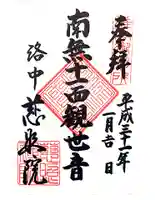 奉拝
平成三十一年
一月吉日
南無十一面観世音
洛中
慈眼院